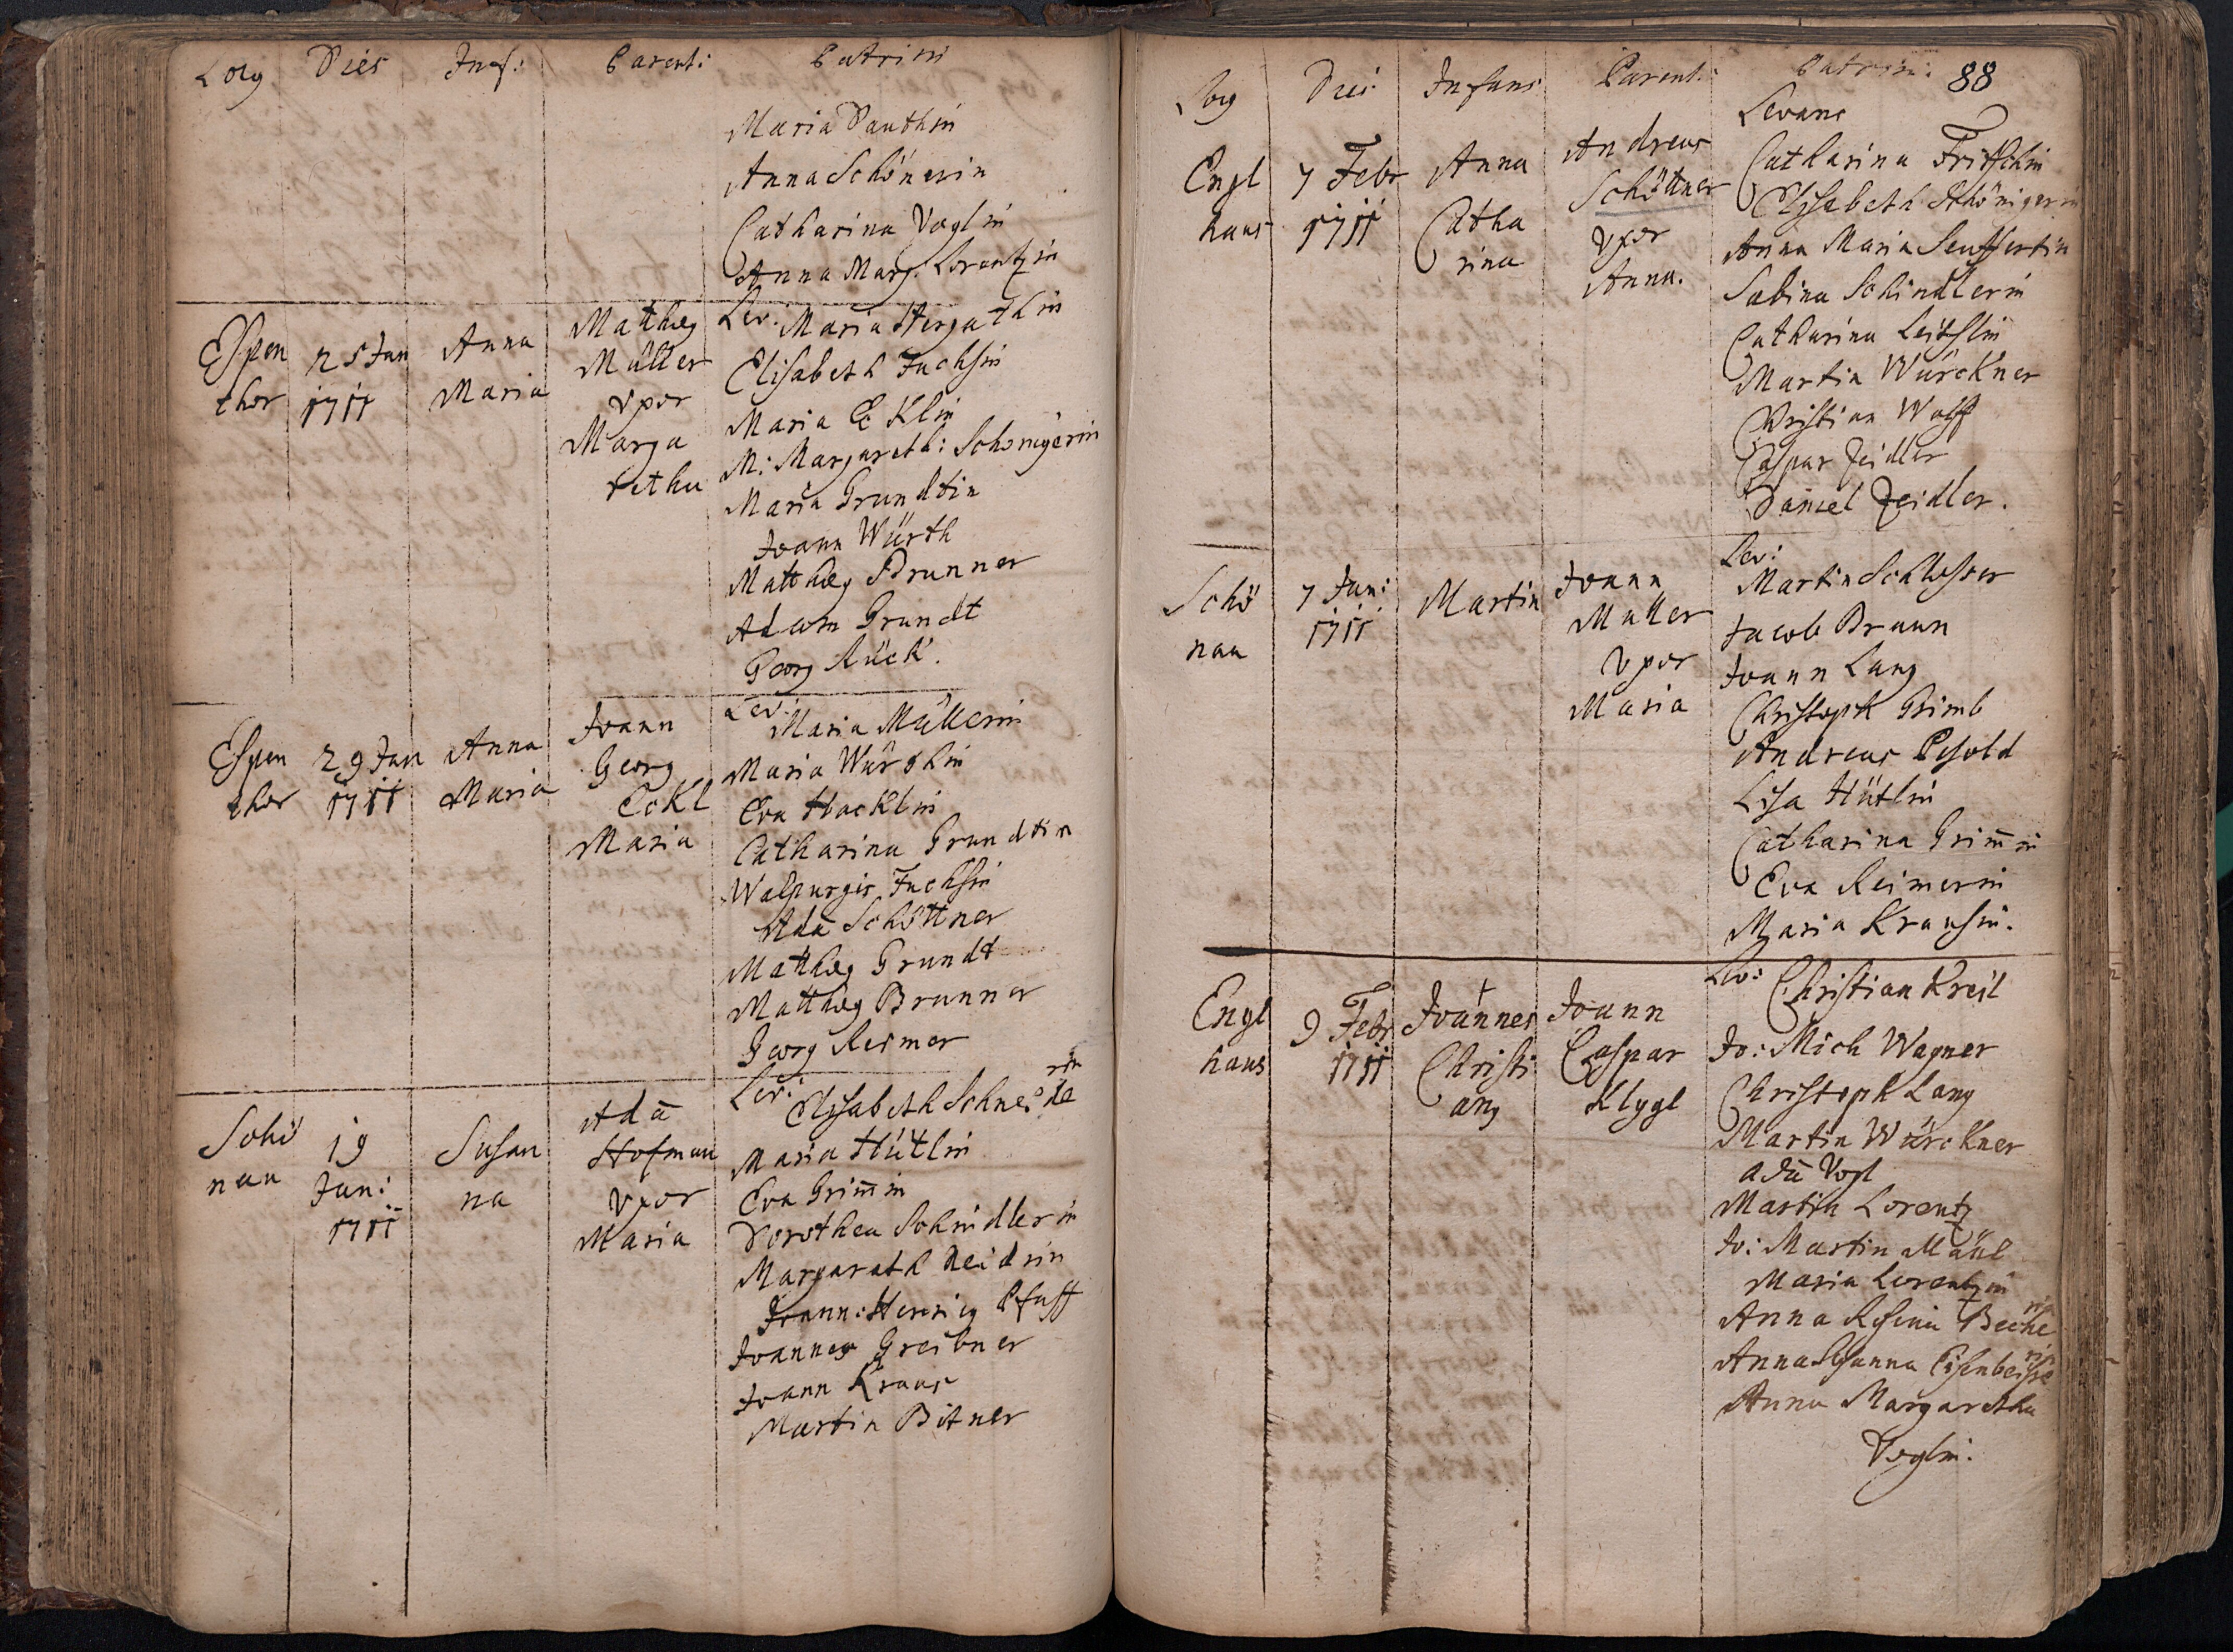 Locg Dies Inf: Parent: Patrini
Maria Panthin
Anna Schönerin
Catharina Voglin
Anna Marg. Lorentzin
Espen
thor
25 Jan
1711
Anna
Maria
Mathæg
Müller
vxor
Marga
retha
Lev: Maria Hergathin
Elisabeth Fuchsin
Maria Eklin
M: Margareth: Schonigerin
Maria Grundtin
Joann Würth
Mathæg Brunner
Adam Grundt
Georg Rück.
Espen
thor
29 Jan
1711
Anna
Maria
Joann
Georg
Eckl
Maria
Lev:
Maria Müllerin
Maria Würthin
Eva Hacklin
Catharina Grundtin
Walpurgis Fuchsin
Adā Schöttner
Mathæg Grundt
Mathæg Brunner
Georg Reimer
Schö
nau
19
Jan:
1711
Susan
na
Adā
Hofman
vxor
Maria
Lev: Elisabeth Schneiderin
Maria Hütlin
Eva Grim̄in
Dorothea Schindlerin
Margareth Neidrin
Joann: Henrig Pfaff
Joannes Greibner
Joann Kraus
Martin Bitner
88
Locg Dies Infans Parent: Patrini:
Engl
haus
7 Febr
1711
Anna
Catha
rina
Andreas
Schöttner
vxor
Anna.
Levans
Catharina Fritschin
Elisabeth Schönigerin
Anna Maria Seuffertin
Sabina Schindlerin
Catharina Leistlin
Martin Würckner
Christian Wolf
Caspar Zeidler
Daniel Zeidler.
Schö
nau
7 Jan:
1711
Martin
Joann
Müller
vxor
Maria
Lev:
Martin Schlosser
Jacob Braun
Joann Lang
Christoph Grimb
Andreas Pesold
Lisa Hütlin
Catharina Grim̄in
Eva Reimerin
Maria Krausin.
Engl
haus
9 Febr
1711
Joannes
Christi
ang
Joann
Caspar
Klygl
Lev: Christian Kreil
Jo: Mich Wagner
Christoph Lang
Martin Würckner
adā Vogl
Martin Lorentz
Jo: Martin Mäül
Maria Lorentzin
Anna Rosina Becherin
Anna Susanna Eisenbeisserin
Anna Margaretha
Voglin.